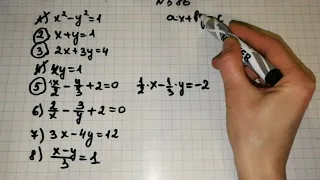 1) x² - y² = 1
ax + by
2) x + y = 1
3) 2x + 3y = 4
4) xy = 1
5) x/2 - y/3 + 2 = 0   1/2 · x - 1/3 · y = -2
6) 2/x - 3/y + 2 = 0
7) 3x - 4y = 12
8) (x - y)/3 = 1